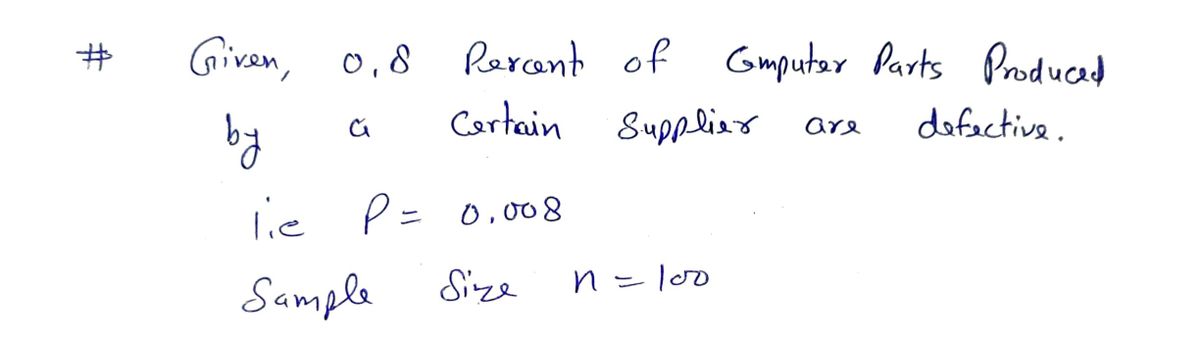 # Given, 0.8 Percent of Computer Parts Produced
by a Certain Supplier are defective.
i.e P = 0.008
Sample Size n = 100